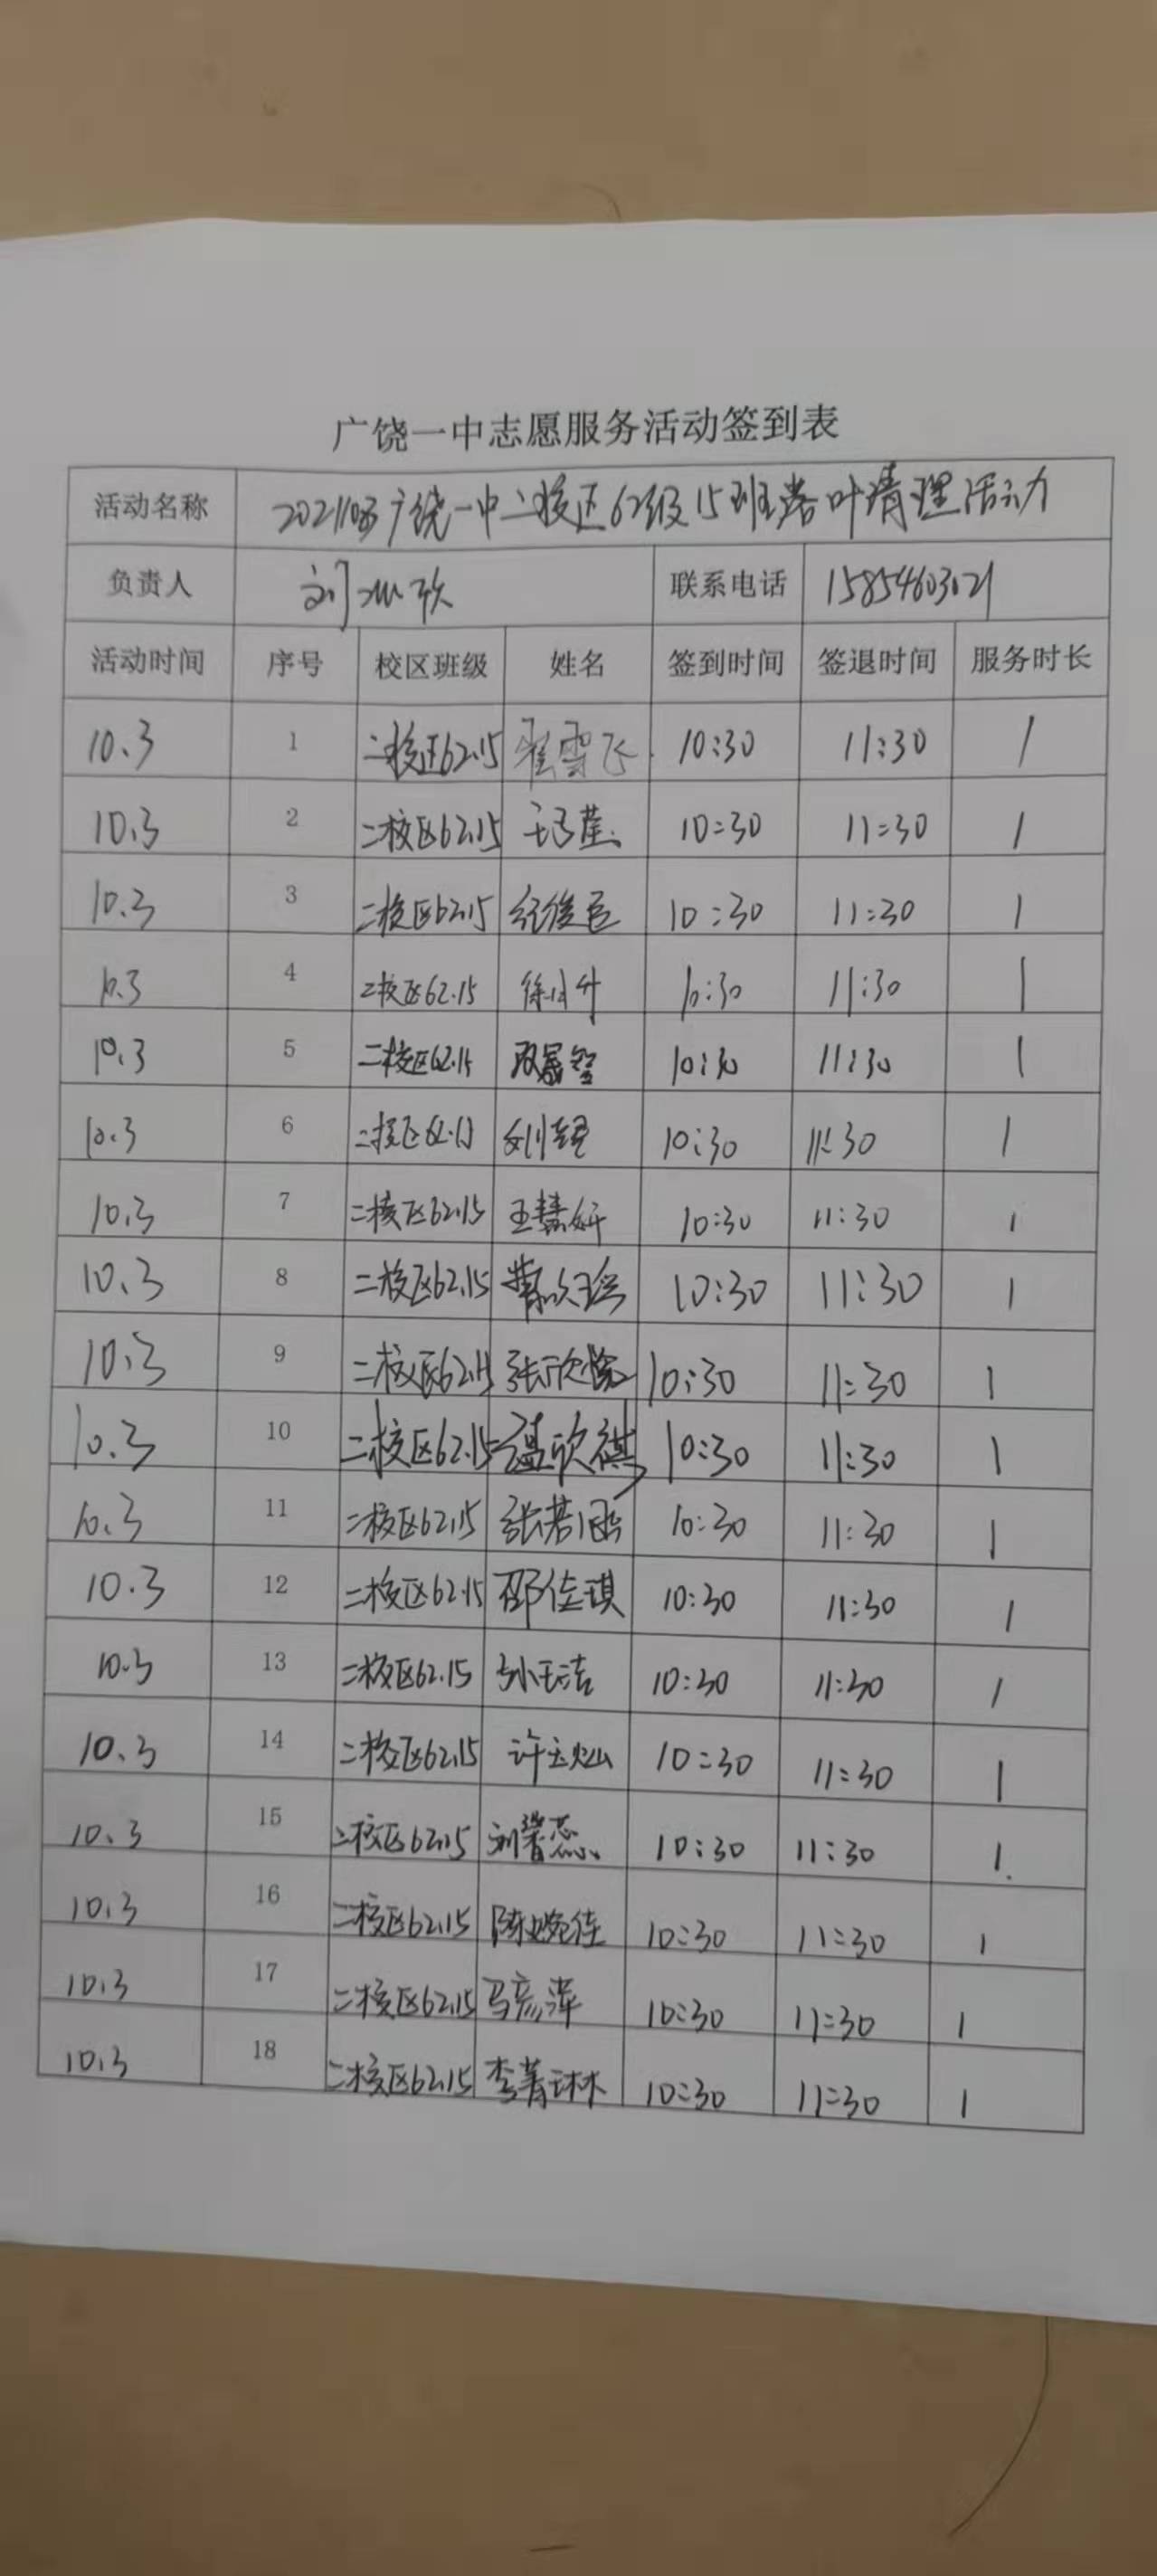 广饶一中志愿服务活动签到表
活动名称 20211003广饶一中二校区62级15班落叶清理活动
负责人 联系电话 15854603021
活动时间 序号 校区班级 姓名 签到时间 签退时间 服务时长
10.3 1 二校区62.15 翟雪飞 10:30 11:30 1
10.3 2 二校区62.15 10:30 11:30 1
10.3 3 二校区62.15 10:30 11:30 1
10.3 4 二校区62.15 10:30 11:30 1
10.3 5 二校区62.15 10:30 11:30 1
10.3 6 二校区62.15 10:30 11:30 1
10.3 7 二校区62.15 王慧妍 10:30 11:30 1
10.3 8 二校区62.15 10:30 11:30 1
10.3 9 二校区62.15 张欣悦 10:30 11:30 1
10.3 10 二校区62.15 温欣祺 10:30 11:30 1
10.3 11 二校区62.15 张若涵 10:30 11:30 1
10.3 12 二校区62.15 邵佳琪 10:30 11:30 1
10.3 13 二校区62.15 10:30 11:30 1
10.3 14 二校区62.15 许玉灿 10:30 11:30 1
10.3 15 二校区62.15 刘馨蕊 10:30 11:30 1
10.3 16 二校区62.15 陈婉佳 10:30 11:30 1
10.3 17 二校区62.15 马彦萍 10:30 11:30 1
10.3 18 二校区62.15 李菁琳 10:30 11:30 1